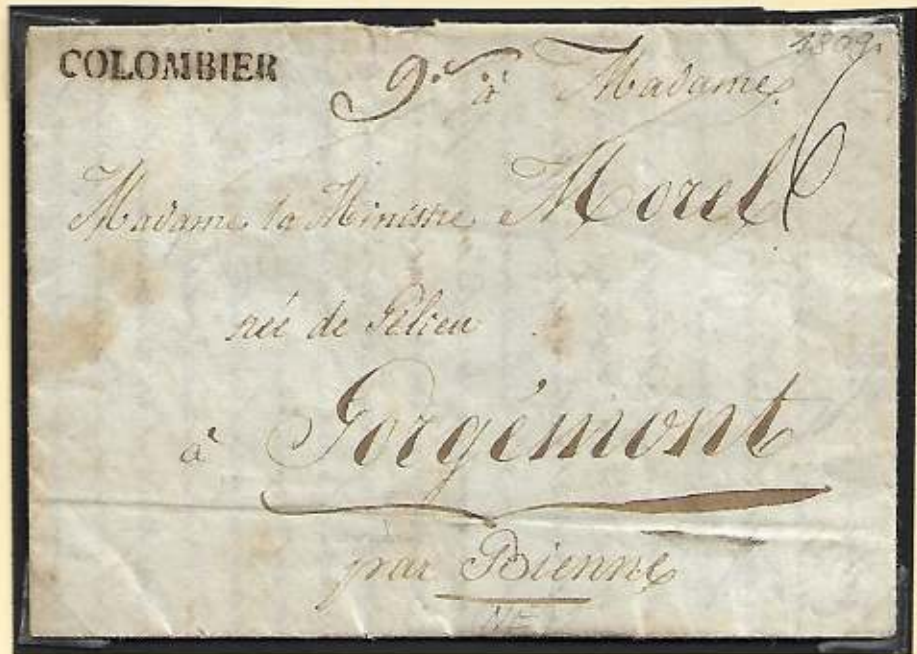 COLOMBIER
1809.
à Madame
Madame la Ministre Morel
née de Gélieu
à Corgémont
par Bienne
NE